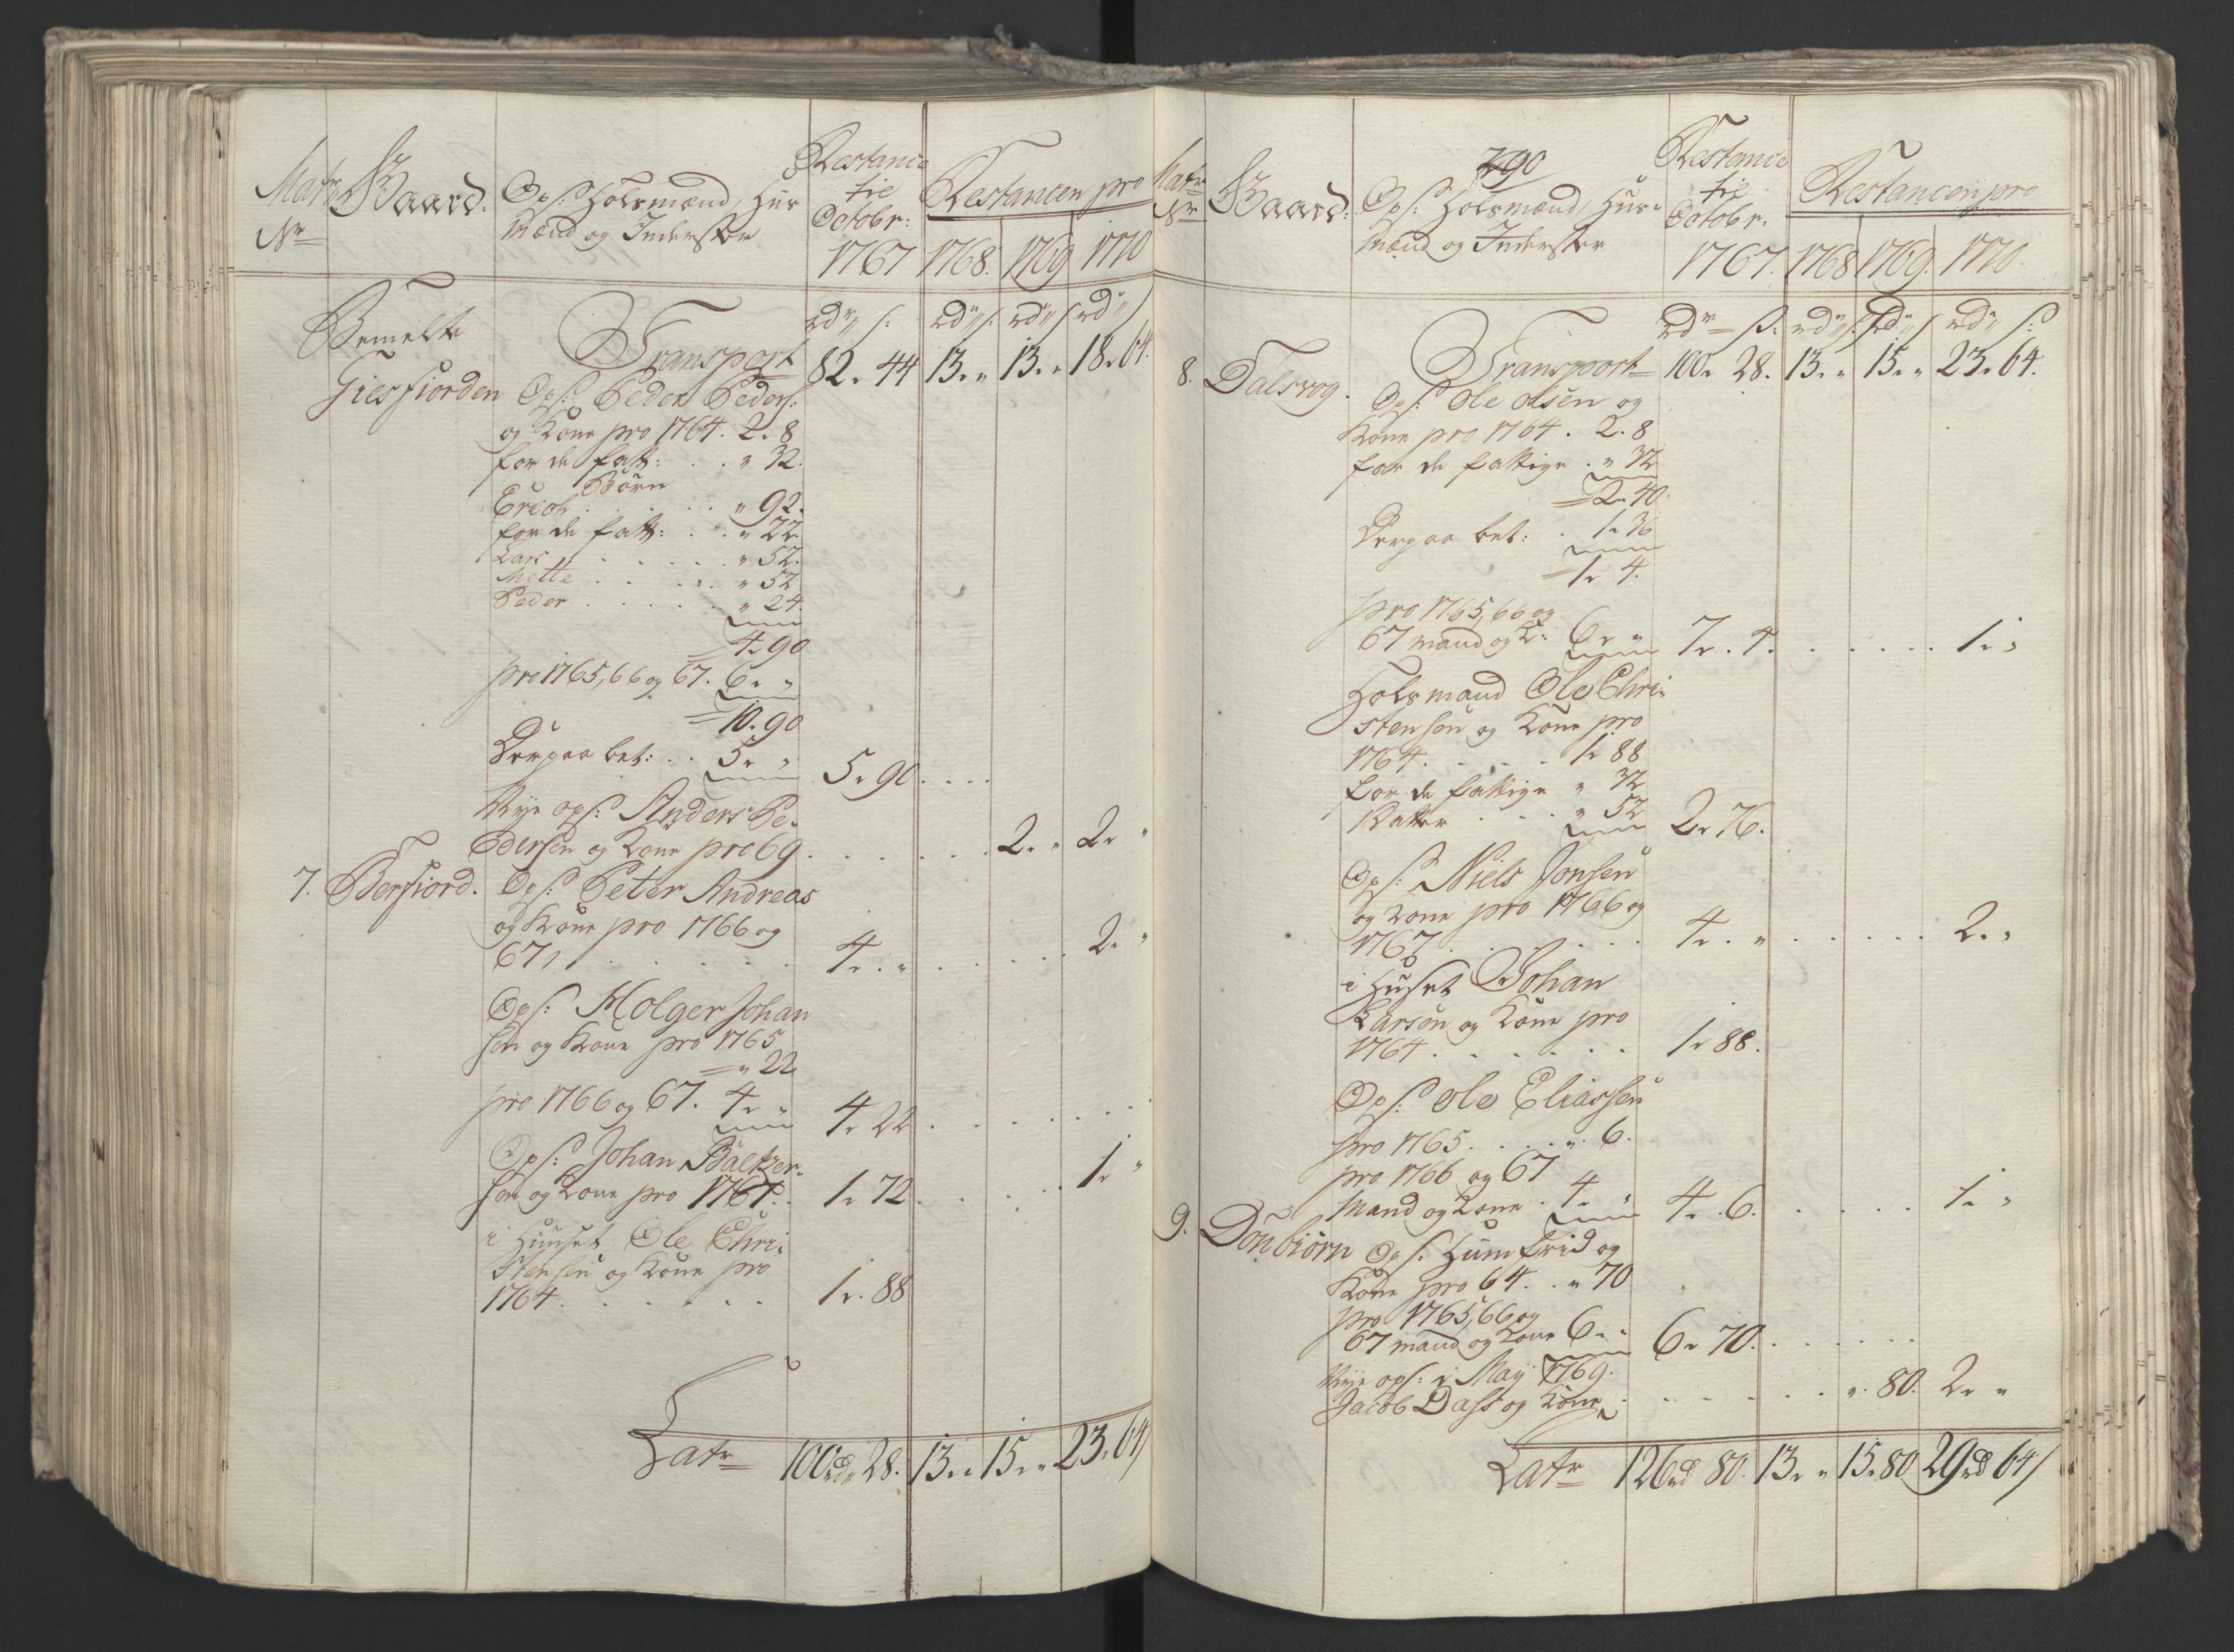 Matr
No
Gaard.
Ops: Holsmænd, Huus
Mænd og Inderster
Restance
til
Octobr:
1767
Restancen pro
1768. 1769 1770
rdr s: rdr s. rdr s rdr s
Bemelte
Giesfiorden
Transport 82. 44 13. " 13. " 18. 64.
Ops: Peder Peders:
og Kone pro 1764. 2. 8
for de fatt: . . " 32.
Børn
Erich . . . . . " 92.
for de fatt: . . " 22.
Lars . . . . . " 52.
Mette . . . . . " 52
Peder . . . . . " 24.
4. 90
pro 1765, 66 og 67. 6. "
10. 90
Derpaa bet: . . 5. " 5. 90 . . . .
Nye ops: Anders Pe-
dersen og Kone pro 69 . . . . . . . 2. " 2. "
7. Berfiord. Ops: Peter Andreas
og Kone pro 1766 og
67, . . . . . 4. . " . . . . . 2. "
Ops: Holger Johan
sen og Kone pro 1765
" 22
pro 1766 og 67. 4. " 4. 22 . . . . . . .
Ops: Johan Baltzer-
sen og Kone pro 1767. . 1. 72. . . . . 1. "
i Huuset Ole Chri-
stensen og Kone pro
1764. . . . . . 1. 88
Latr 100rd. 28. 13. " 15. " 23. 64
290
Matr
No
Gaard:
Ops: Holsmænd, Huus-
Mænd og Inderster
Restance
til
Octobr:
1767.
Restancen pro
1768 1769. 1770.
rdr s: rdr s. rdr s rdr s:
8. Talsvog.
Transport 100. 28. 13. " 15. " 23. 64.
Ops: Ole Olsen og
Kone pro 1764. 2. 8
for de fattige . " 32
2. 40.
Derpaa bet: . 1. 36
1. 4.
pro 1765, 66 og
67 mand og K: 6. " 7. . 4. . . . . . . 1. "
Holsmand Ole Chri-
stensen og Kone pro
1764. . . . . 1. 88
for de fattige " 32
Datter . . . " 52 2. 76.
Ops: Niels Jonsen
og Kone pro 1766 og
1767 . . . . . . 4. . " . . . . . 2. "
i Huset Johan
Larsen og Kone pro
1764 . . . . . . 1. 88.
Ops: Ole Eliassen
pro 1765. . . . ". 6.
pro 1766 og 67
Mand og Kone . 4. " 4. . 6. . . . . . 1. "
9. Dønbiørn Ops: Humfrid og
Kone pro 64. . " 70
pro 1765, 66 og
67 mand og Kone 6. " 6. 70. . . . . .
Nye ops: i May 1769.
Jacob Dass og Kone . . . . . . . ". 80. 2. "
Latr 126rd 80. 13. " 15. 80 29rd 64